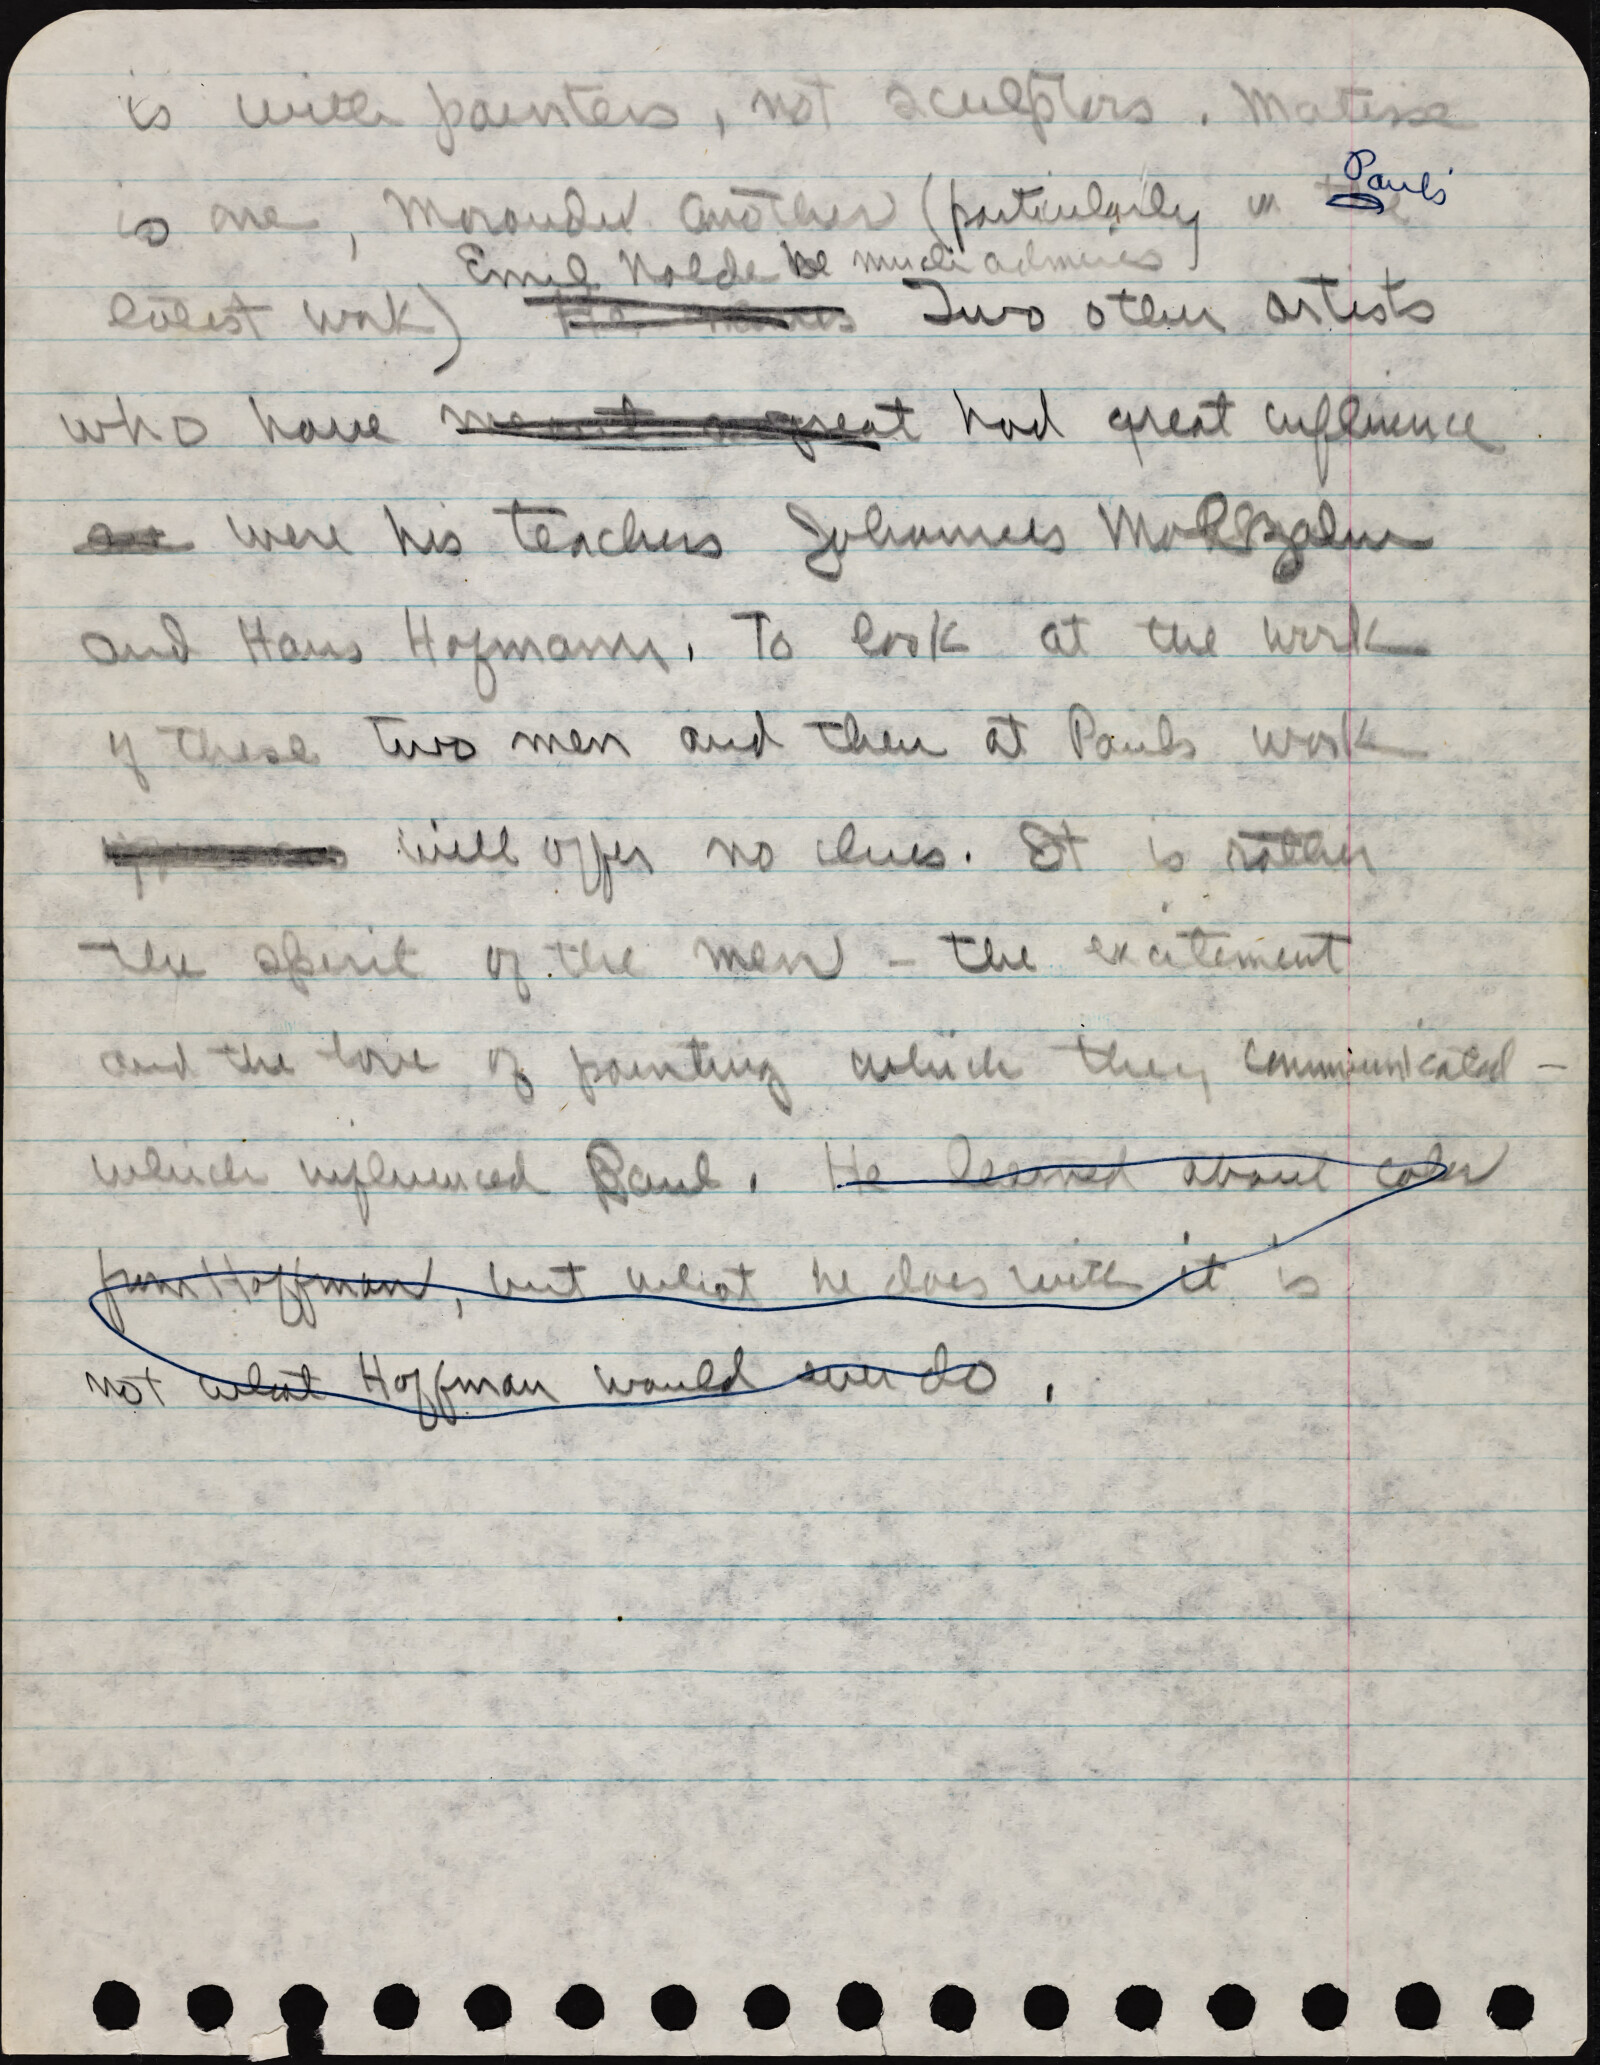 is with painters, not sculptors. Matisse
Paul's
is one, Morandi another (particularly in the
Emil Nolde he much admires
latest work) He admires Two other artists
who have meant a great had great influence
are were his teachers Johannes Molzahn
and Hans Hofmann. To look at the work
of these two men and then at Pauls work
will offer no clues. It is rather
the spirit of the men - the excitement
and the love of painting which they communicated -
which influenced Paul. He learned about color
from Hoffman, but what he does with it is
not what Hoffman would ever do.